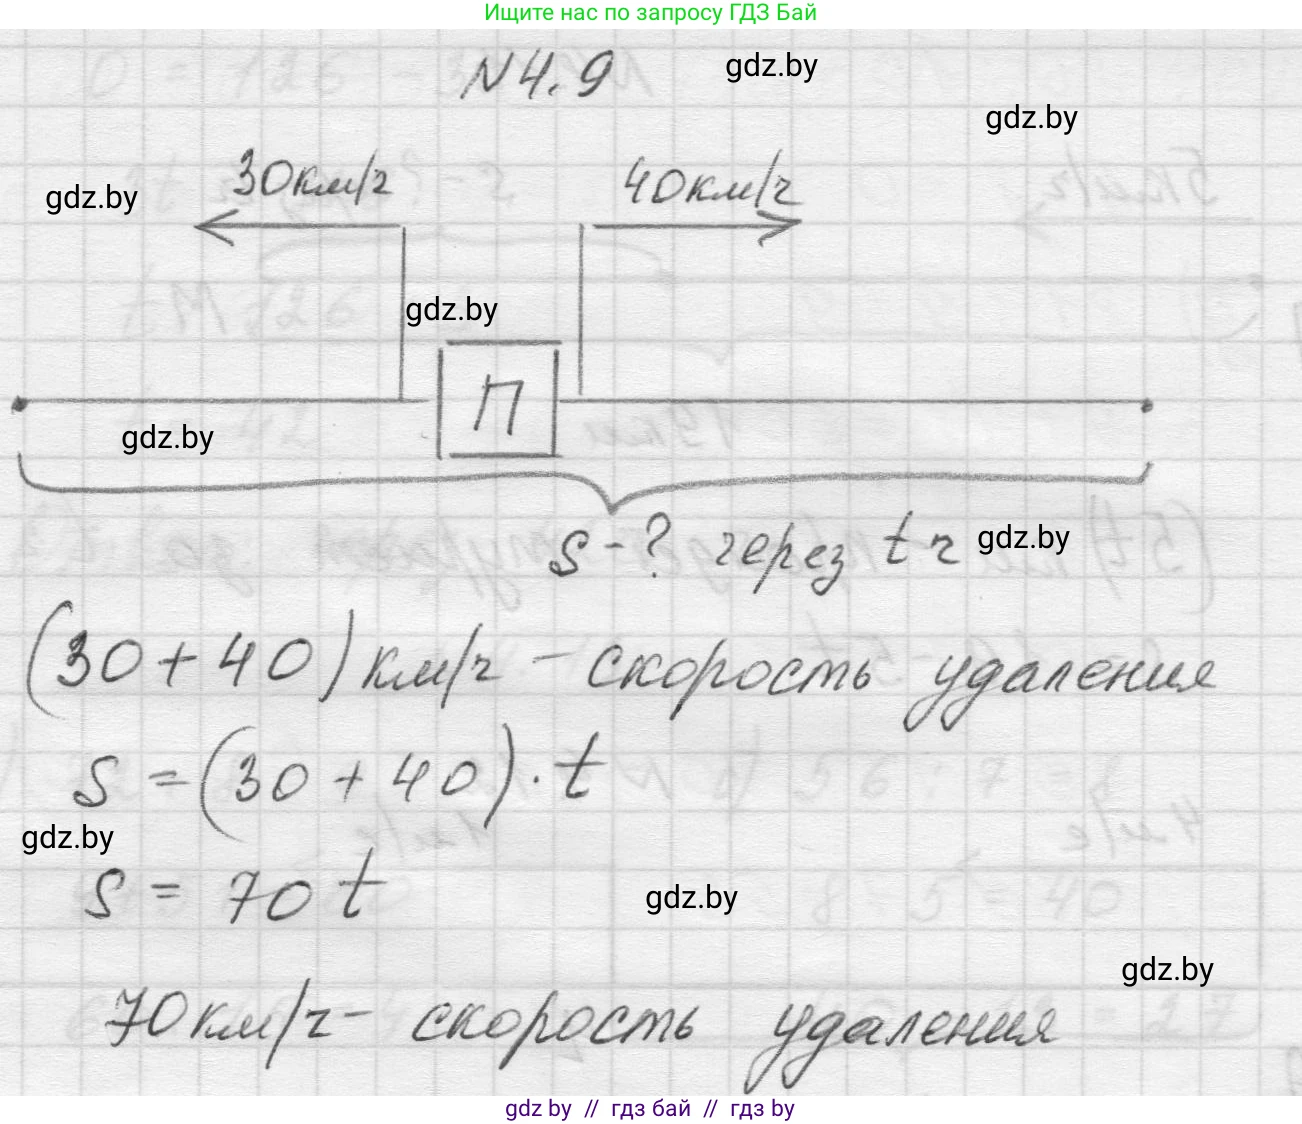 Ищите нас по запросу ГДЗ Бай
N 4.9
gdz.by
gdz.by
30км/ч
40км/ч
gdz.by
gdz.by
П
gdz.by
s - ? через t ч
gdz.by
(30 + 40) км/ч - скорость удаления
s = (30 + 40) · t
gdz.by
s = 70 t
gdz.by
gdz.by
70 км/ч - скорость удаления
gdz by // гдз бай // гдз by